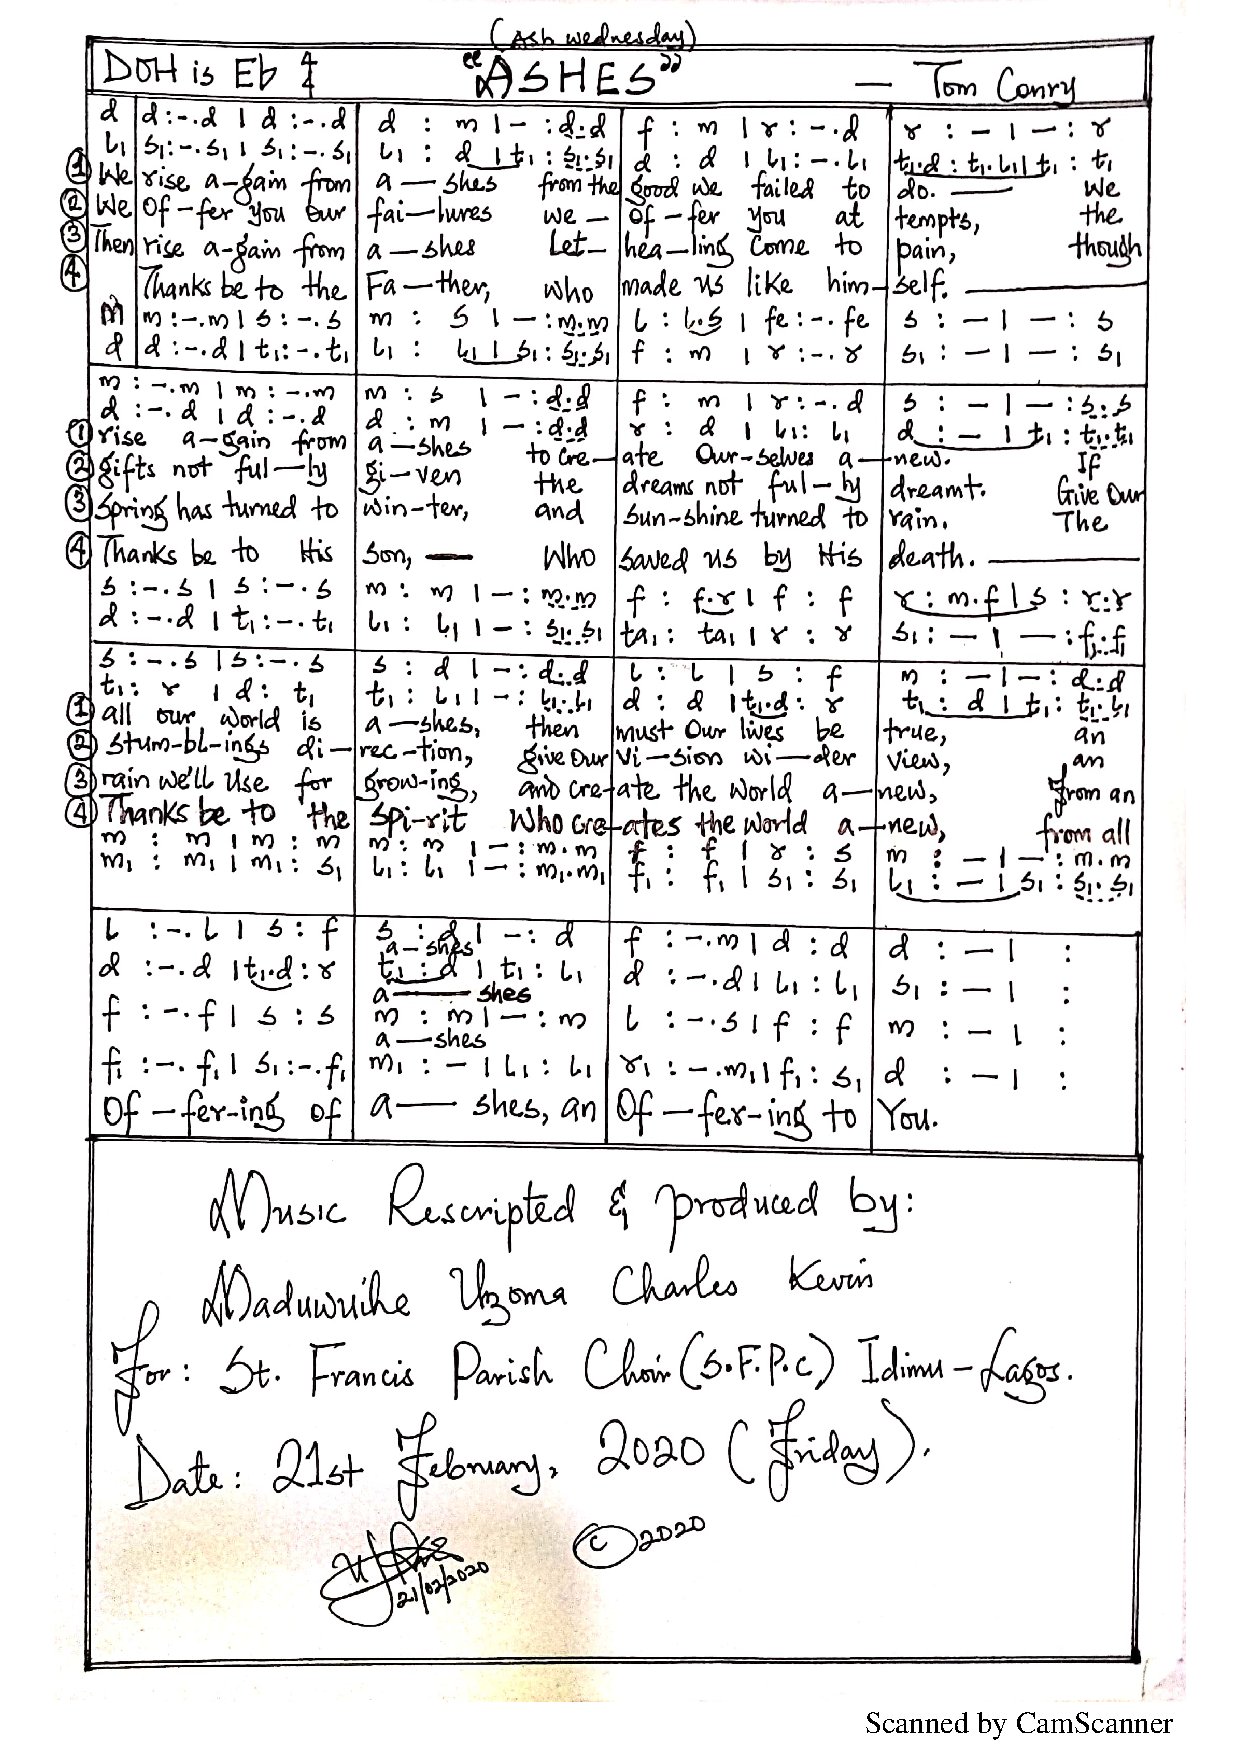 (Ash Wednesday)
DOH is Eb 4/4 "ASHES" — Tom Conry
d | d :-.d | d :-.d | d : m | - : d.d | f : m | r :-.d | r : - | - : r
l₁ | s₁:-.s₁ | s₁:-.s₁ | l₁ : d | t₁ : s₁.s₁ | d : d | l₁:-.l₁ | t₁.d : t₁.l₁ | t₁ : t₁
① We rise a-gain from a—shes from the good we failed to do. — We
② We Of-fer you our fai-lures we — of-fer you at tempts, the
③ Then rise a-gain from a—shes Let— hea-ling come to pain, though
④ Thanks be to the Fa-ther, who made us like him-self. —
m | m :-.m | s :-.s | m : s | - : m.m | l : l.s | fe :-.fe | s : - | - : s
d | d :-.d | t₁:-.t₁ | l₁ : l₁ | s₁ : s₁.s₁ | f : m | r :-.r | s₁ : - | - : s₁
m :-.m | m :-.m | m : s | - : d.d | f : m | r :-.d | s : - | - : s.s
d :-.d | d :-.d | d : m | - : d.d | r : d | l₁ : l₁ | d : - | t₁ : t₁.t₁
① rise a-gain from a—shes to cre-ate Our-selves a—new. If
② gifts not ful—ly gi-ven the dreams not ful-ly dreamt. Give Our
③ Spring has turned to win-ter, and sun-shine turned to rain. The
④ Thanks be to His Son, — Who saved us by His death. —
s :-.s | s :-.s | m : m | - : m.m | f : f.r | f : f | r : m.f | s : r.r
d :-.d | t₁:-.t₁ | l₁ : l₁ | - : s₁.s₁ | ta₁ : ta₁ | r : r | s₁ : - | - : f₁.f₁
s :-.s | s :-.s | s : d | - : d.d | l : l | s : f | m : - | - : d.d
t₁ : r | d : t₁ | t₁ : l₁ | - : l₁.l₁ | d : d | t₁.d : r | t₁ : d | t₁ : t₁.l₁
① all our world is a—shes, then must Our lives be true, an
② stum-bl-ings di-rec-tion, give Our Vi-sion wi-der view, an
③ rain we'll use for grow-ing, and cre-ate the world a-new, from an
④ Thanks be to the Spi-rit Who cre-ates the World a-new, from all
m : m | m : m | m : m | - : m.m | f : f | r : s | m : - | - : m.m
m₁ : m₁ | m₁ : s₁ | l₁ : l₁ | - : m₁.m₁ | f₁ : f₁ | s₁ : s₁ | l₁ : - | s₁ : s₁.s₁
l :-.l | s : f | s : d | - : d | f :-.m | d : d | d : - | :
a-shes
d :-.d | t₁.d : r | t₁ : d | t₁ : l₁ | d :-.d | l₁ : l₁ | s₁ : - | :
a— shes
f :-.f | s : s | m : m | - : m | l :-.s | f : f | m : - | :
a—shes
f₁ :-.f₁ | s₁:-.f₁ | m₁ : - | l₁ : l₁ | r₁ :-.m₁ | f₁ : s₁ | d : - | :
Of-fer-ing of a— shes, an Of-fer-ing to You.
Music Rescripted & produced by:
Maduwuihe Uzoma Charles Kevin
For: St. Francis Parish Choir (S.F.P.C) Idimu-Lagos.
Date: 21st February, 2020 (Friday).
© 2020
21/02/2020
Scanned by CamScanner